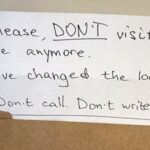 lease, DON'T visit
e anymore.
ve changed the loc
Don't call. Don't write